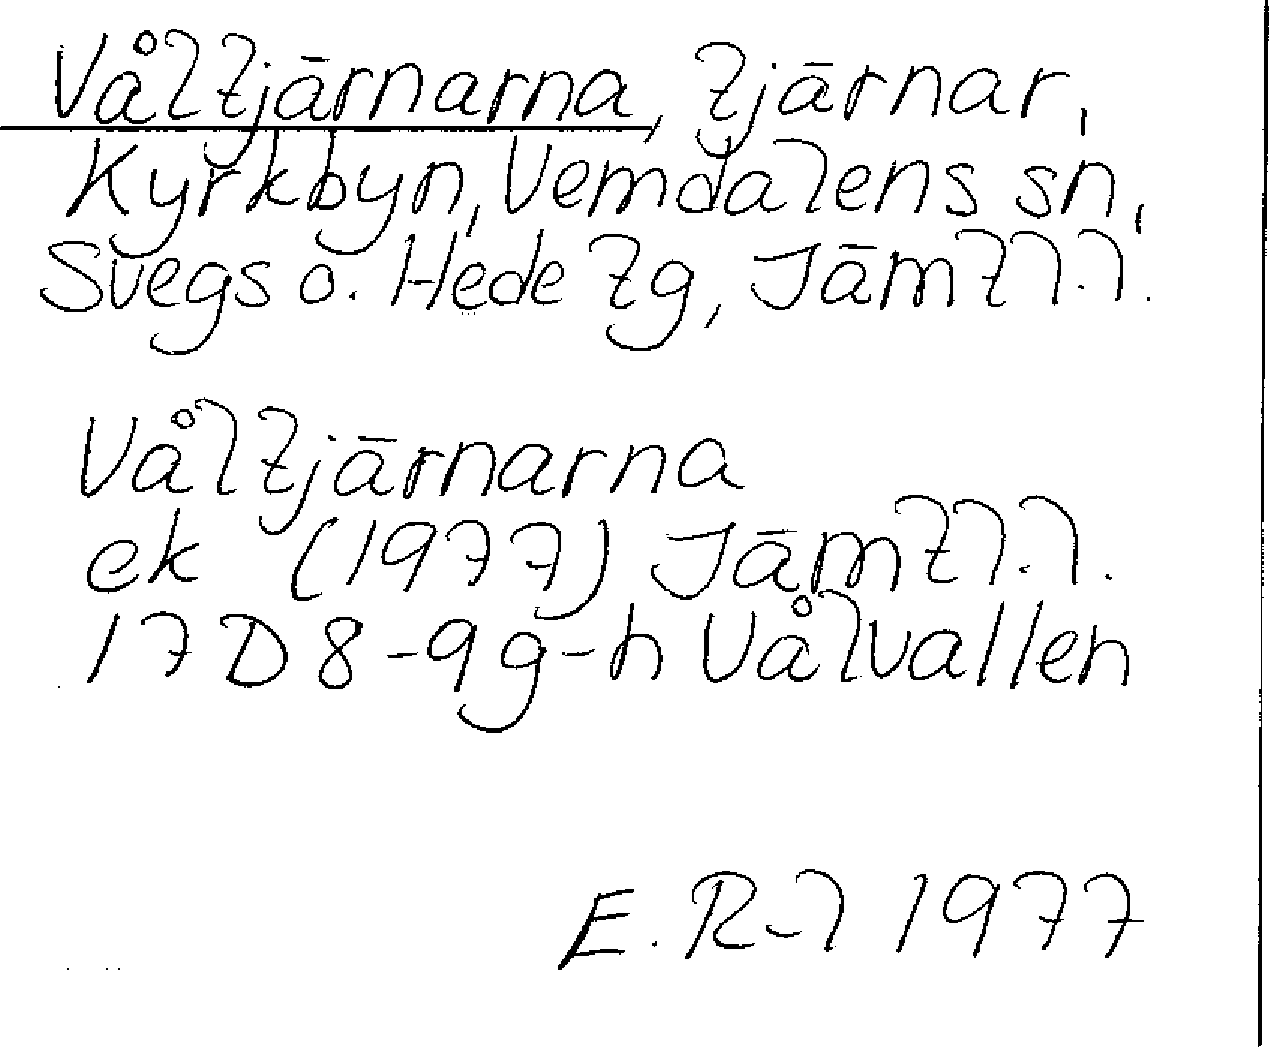 Våltjärnarna, tjärnar,
Kyrkbyn, Vemdalens sn,
Svegs o. Hede tg, Jämtl.l.
Våltjärnarna
ek (1977) Jämtl.l.
17D 8-9g-h Vålvallen
E. R-l 1977